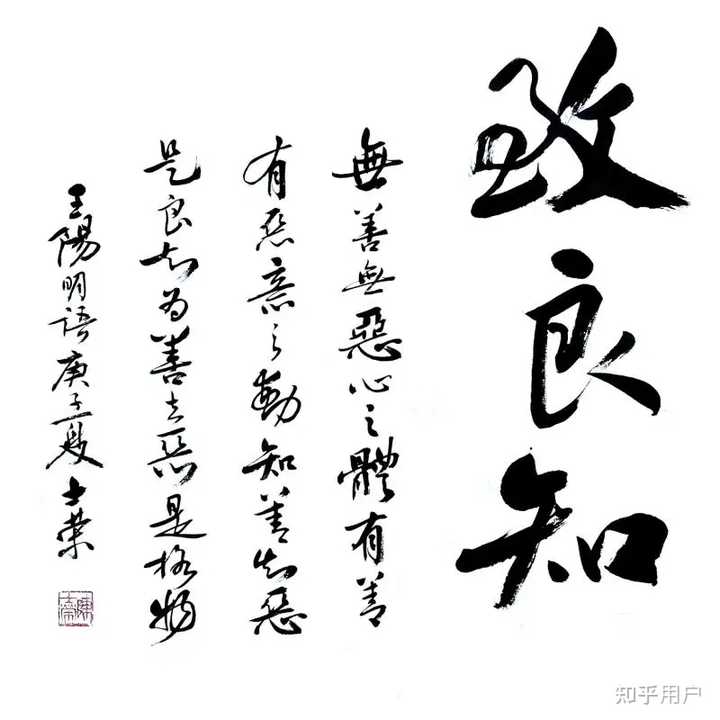 致良知
無善無惡心之體有善
有惡意之動知善知惡
是良知为善去惡是格物
王陽明語庚子夏士榮
知乎用户